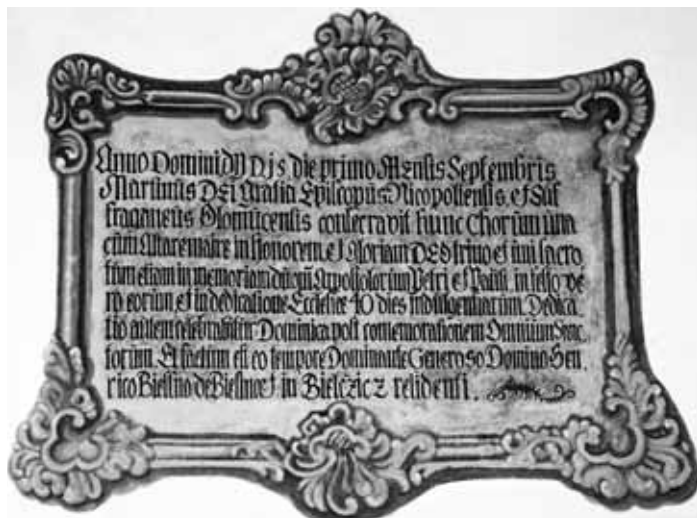 Anno Domini Djs die primo Mensis Septembris
Martinus DEi gratia Episcopus Nicopoliensis, et Suf
fraganeus Olomucensis consecravit hunc Chorum una
cum Altare maiire in Honorem et Gloriam DEO trino et uni sacro
tum etiam in memoriam Appostolorum Petri et Pauli in festo ve
ro eorum et in dedicatione Ecclesiae 40 dies indulgentiarum Dedica
tio autem celebrabitur Dominica post comemorationem Omnium Sanc,
torum. Et factum est eo tempore Dominante Generoso Domino Hen,
rico de et in Bielczicz residenti.